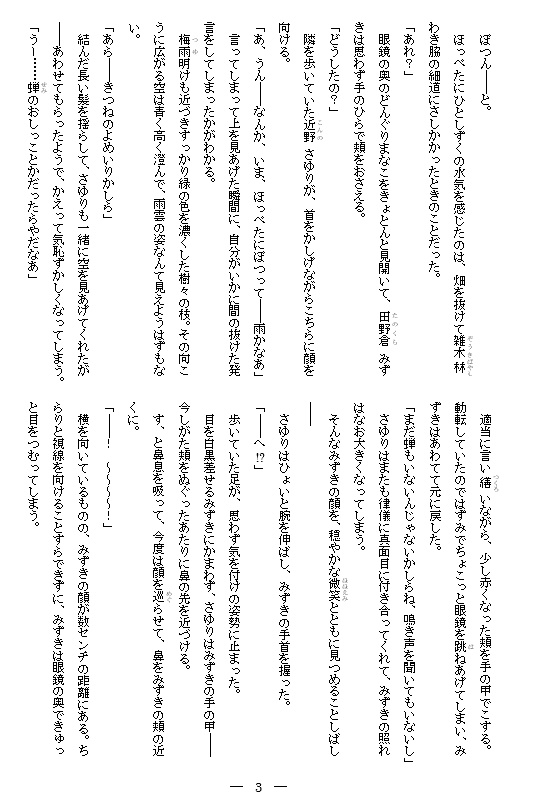 ぽつん――と。
ほっぺたにひとしずくの水気を感じたのは、畑を抜けて雑木林
わき脇の細道にさしかかったときのことだった。
「あれ？」
眼鏡の奥のどんぐりまなこをきょとんと見開いて、田野倉 みず
きは思わず手のひらで頬をおさえる。
「どうしたの？」
隣を歩いていた近野 さゆりが、首をかしげながらこちらに顔を
向ける。
「あ、うん――なんか、いま、ほっぺたにぽつって――雨かなあ」
言ってしまって上を見あげた瞬間に、自分がいかに間の抜けた発
言をしてしまったかがわかる。
梅雨明けも近づきすっかり緑の色を濃くした樹々の枝。その向こ
うに広がる空は青く高く澄んで、雨雲の姿なんて見えようはずもな
い。
「あら――きつねのよめいりかしら」
結んだ長い髪を揺らして、さゆりも一緒に空を見あげてくれたが
――あわせてもらったようで、かえって気恥ずかしくなってしまう。
「うー……蝉のおしっことかだったらやだなあ」
適当に言い繕いながら、少し赤くなった頬を手の甲でこする。
動転していたのではずみでちょこっと眼鏡を跳ねあげてしまい、み
ずきはあわてて元に戻した。
「まだ蝉もいないんじゃないかしらね、鳴き声を聞いてもいないし」
さゆりはまたも律儀に真面目に付き合ってくれて、みずきの照れ
はなお大きくなってしまう。
そんなみずきの顔を、穏やかな微笑とともに見つめることしばし
――
さゆりはひょいと腕を伸ばし、みずきの手首を握った。
「――へ!?」
歩いていた足が、思わず気を付けの姿勢に止まった。
目を白黒差せるみずきにかまわず、さゆりはみずきの手の甲――
今しがた頬をぬぐったあたりに鼻の先を近づける。
す、と鼻息を吸って、今度は顔を巡らせて、鼻をみずきの頬の近
くに。
「――！ ～～～～！」
横を向いているものの、みずきの顔が数センチの距離にある。ち
らりと視線を向けることすらできずに、みずきは眼鏡の奥できゅっ
と目をつむってしまう。
― 3 ―